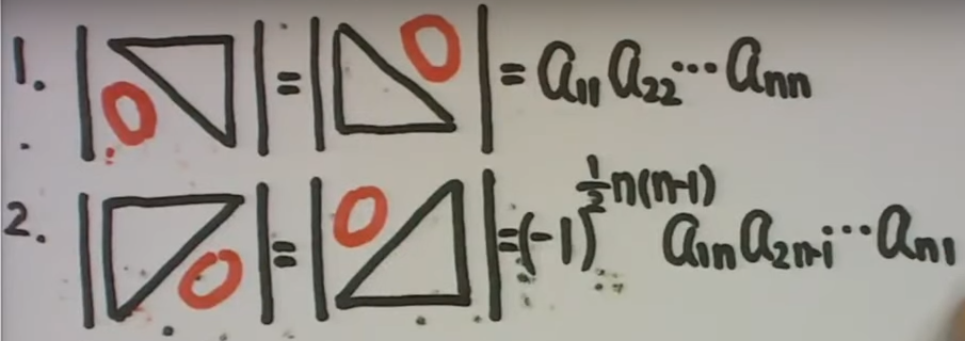 1. | O | = | O | = a₁₁ a₂₂ ⋯ aₙₙ
2. | O | = | O | = (-1)^{½n(n-1)} a₁ₙ a₂ₙ₋₁ ⋯ aₙ₁